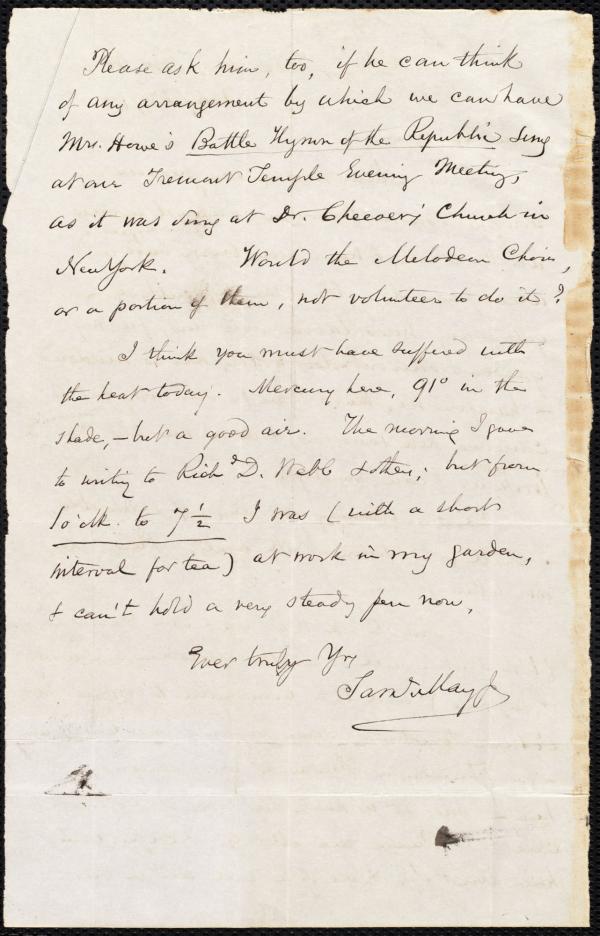 Please ask him, too, if he can think
of any arrangement by which we can have
Mrs. Howe's Battle Hymn of the Republic sung
at our Tremont Temple Evening Meeting,
as it was sung at Dr. Cheever's Church in
New York. Would the Melodeon Choir,
or a portion of them, not volunteer to do it?
I think you must have suffered with
the heat today. Mercury here, 91° in the
shade, – but a good air. The morning I gave
to writing to Richd D. Webb & others; but from
1 o'clk. to 7 1/2 I was (with a short
interval for tea) at work in my garden,
& can't hold a very steady pen now.
Ever truly Yrs
Saml. May Jr